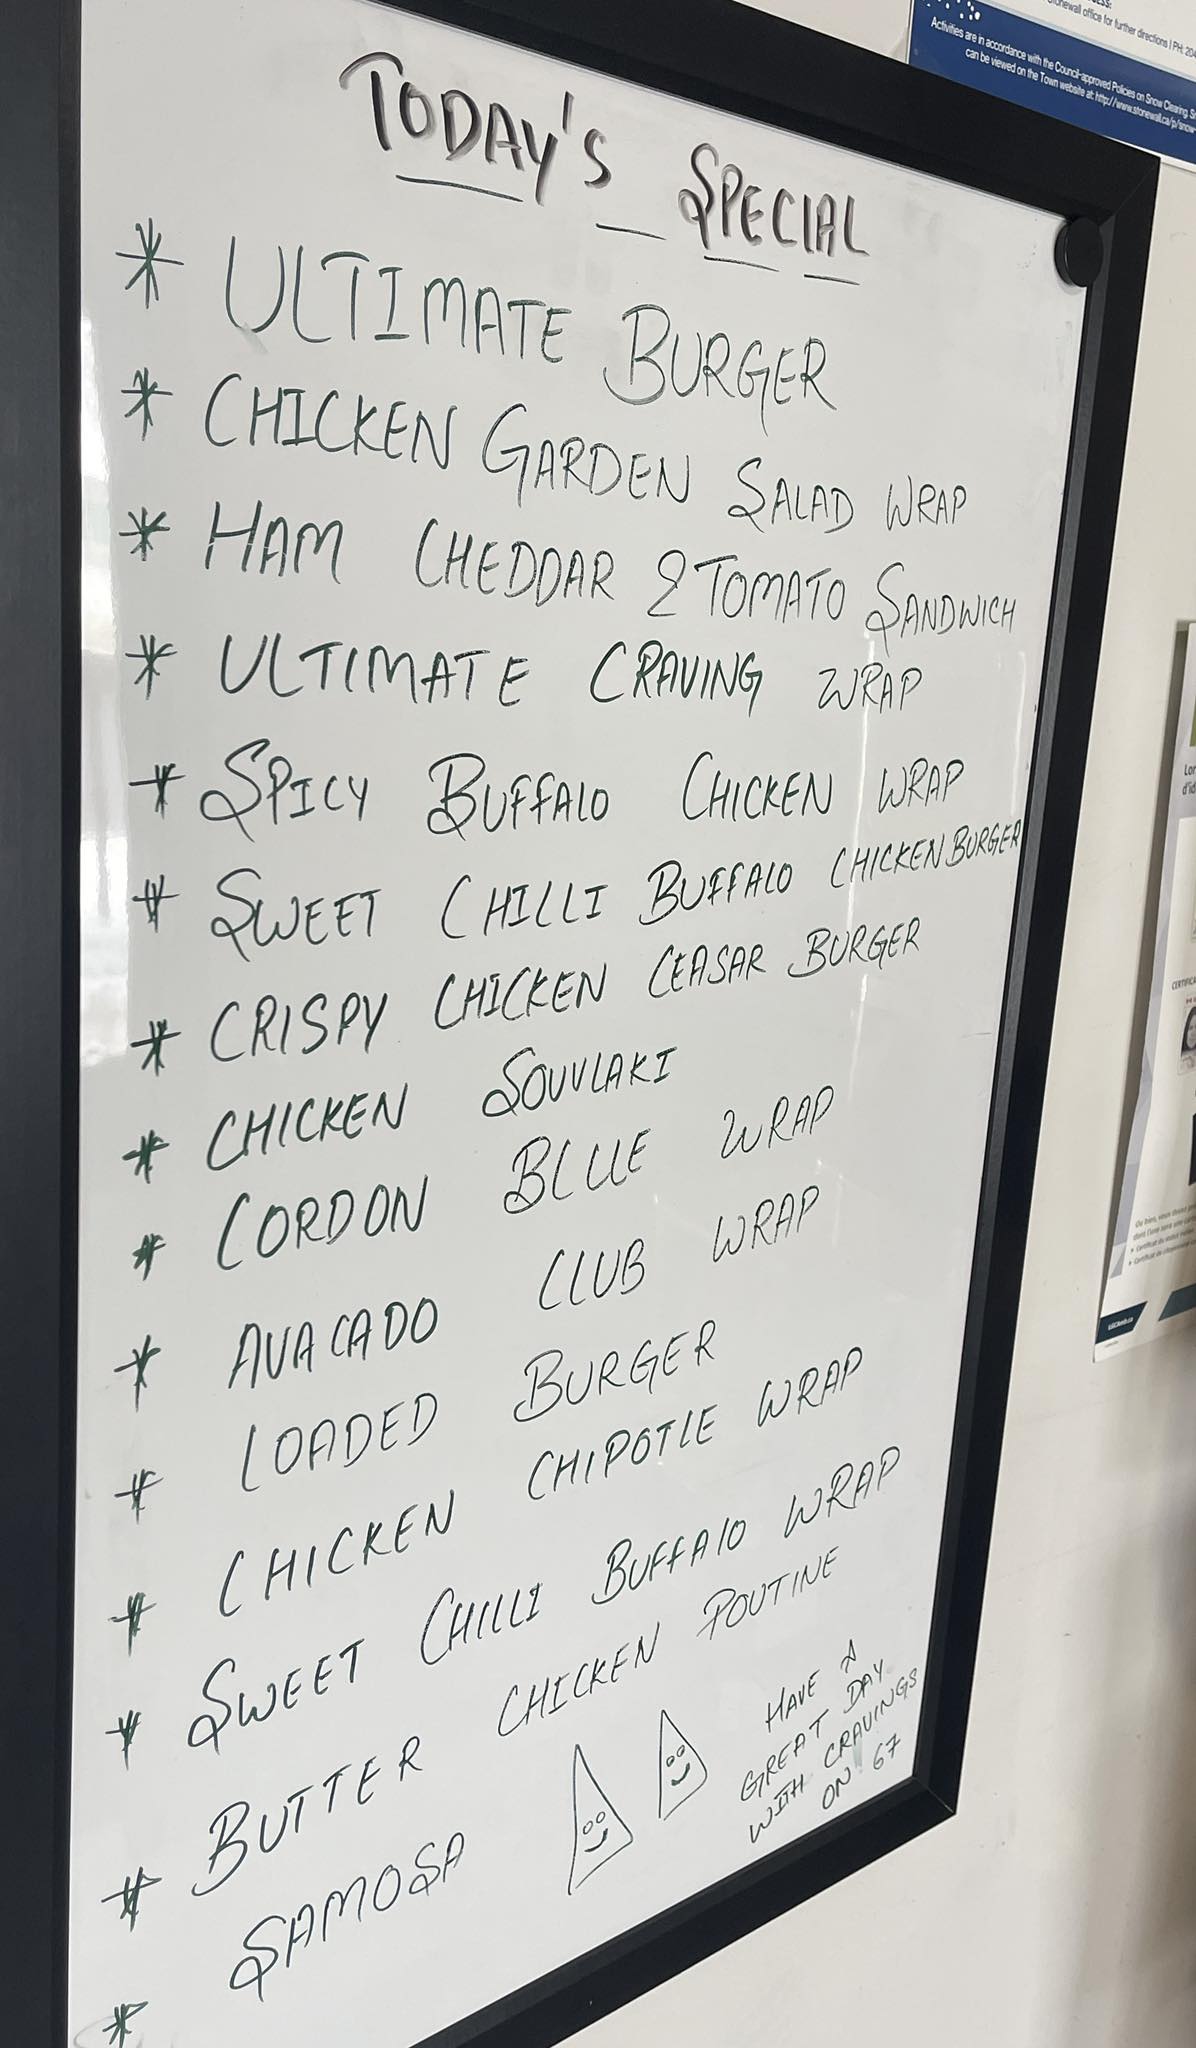 TODAY'S SPECIAL
* ULTIMATE BURGER
* CHICKEN GARDEN SALAD WRAP
* HAM CHEDDAR & TOMATO SANDWICH
* ULTIMATE CRAVING WRAP
* SPICY BUFFALO CHICKEN WRAP
* SWEET CHILLI BUFFALO CHICKEN BURGER
* CRISPY CHICKEN CEASAR BURGER
* CHICKEN SOUVLAKI
* CORDON BLUE WRAP
* AVACADO CLUB WRAP
* LOADED BURGER
* CHICKEN CHIPOTLE WRAP
* SWEET CHILLI BUFFALO WRAP
* BUTTER CHICKEN POUTINE
* SAMOSA
HAVE A
GREAT DAY
WITH CRAVINGS
ON 67
Stonewall office for further directions | PH: 204
Activities are in accordance with the Council-approved Policies on Snow Clearing
can be viewed on the Town website at: http://www.stonewall.ca/p/snow-